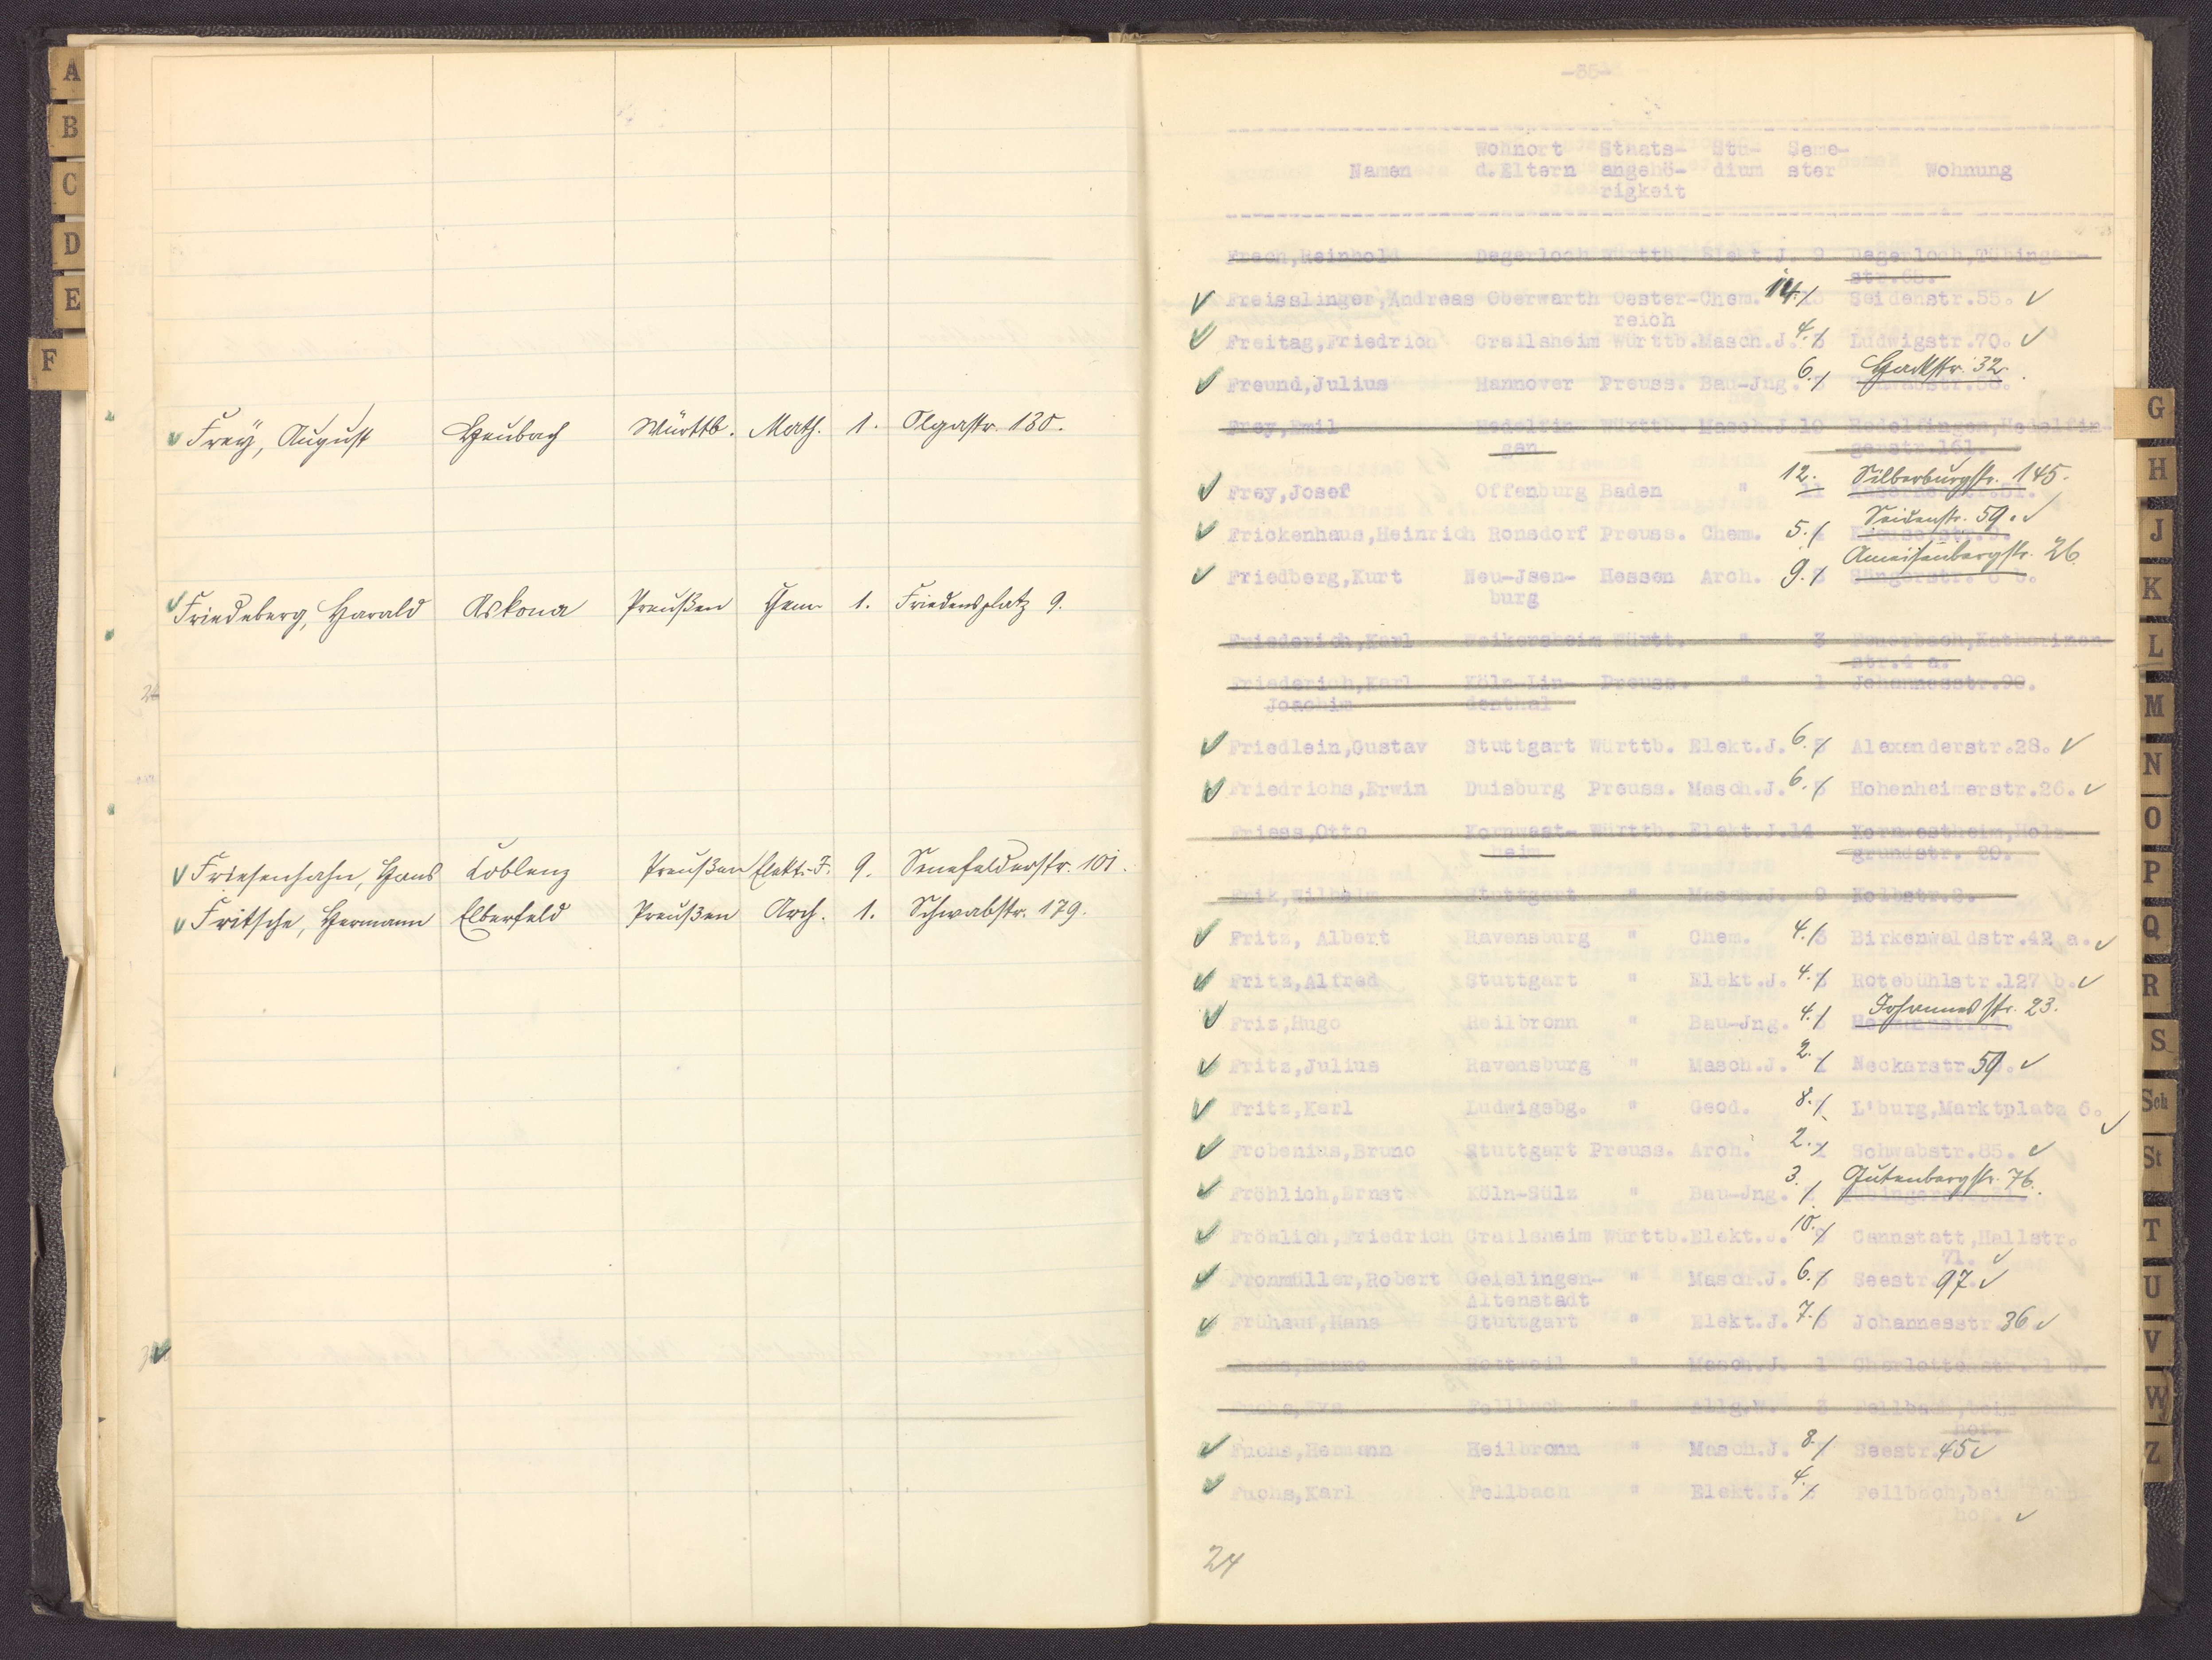 A
B
C
D
E
F
Frey, August Heubach Württb. Math. 1. Olgastr. 130.
Friedeberg, Harald Askona Preußen Chem. 1. Friedensplatz 9.
Friesenhahn, Hans Coblenz Preußen Elekt.-I. 9. Senefelderstr. 101.
Fritsche, Hermann Elberfeld Preußen Arch. 1. Schwabstr. 179.
-35-
Wohnort Staats- Stu- Seme-
Namen d.Eltern angehö- dium ster Wohnung
rigkeit
Frech,Reinhold Degerloch Württb. Elekt.J. 9 Degerloch,Tübinger-
str.65.
Freisslinger,Andreas Oberwarth Oester- Chem. 14. 13 Seidenstr.55.
reich
Freitag,Friedrich Crailsheim Württb. Masch.J. 4. 3 Ludwigstr.70.
Freund,Julius Hannover Preuss. Bau-Jng. 6. 5 Hackstr. 32.
Frey,Emil Hedelfin- Württb. Masch.J.10 Hedelfingen,Hedelfin-
gen gerstr.161.
Frey,Josef Offenburg Baden " 12. 11 Silberburgstr. 145.
Seidenstr. 59.
Frickenhaus,Heinrich Ronsdorf Preuss. Chem. 5. 4
Ameisenbergstr. 26.
Friedberg,Kurt Neu-Jsen- Hessen Arch. 9. 8 Sängerstr. 6 b.
burg
Friederich,Karl Weikersheim Württ. " 3 Feuerbach,Katharinen-
str.4 a.
Friederich,Karl Köln-Lin- Preuss. " 1 Johannesstr.90.
Joachim denthal
Friedlein,Gustav Stuttgart Württb. Elekt.J. 6. 5 Alexanderstr.28.
Friedrichs,Erwin Duisburg Preuss. Masch.J. 6. 5 Hohenheimerstr.26.
Friess,Otto Kornwest- Württb. Elekt.J.14 Kornwestheim,Holz-
heim grundstr. 20.
Frik,Wilhelm Stuttgart " Masch.J. 9 Kolbstr.8.
Fritz, Albert Ravensburg " Chem. 4. 3 Birkenwaldstr.42 a.
Fritz,Alfred Stuttgart " Elekt.J. 4. 3 Rotebühlstr.127 b.
Friz,Hugo Heilbronn " Bau-Jng. 4. 3 Johannesstr. 23.
Fritz,Julius Ravensburg " Masch.J. 2. 1 Neckarstr. 59.
Fritz,Karl Ludwigsbg. " Geod. 8. L'burg,Marktplatz 6.
Frobenius,Bruno Stuttgart Preuss. Arch. 2. 1 Schwabstr.85.
Fröhlich,Ernst Köln-Sülz " Bau-Jng. 3. Gutenbergstr. 76.
Fröhlich,Friedrich Crailsheim Württb. Elekt.J. 10. 9 Cannstatt,Hallstr.
71.
Fronmüller,Robert Geislingen- " Masch.J. 6. 5 Seestr. 97
Altenstadt
Frühauf,Hans Stuttgart " Elekt.J. 7. 6 Johannesstr. 36
Fuchs, Rottweil " Masch.J. 1 Charlottenstr.21
Fuchs,Eva Fellbach " Allg.W. 3 Fellbach,beim Bahn-
hof.
Fuchs,Hermann Heilbronn " Masch.J. 8. Seestr. 45
Fuchs,Karl Fellbach " Elekt.J. 4. 3 Fellbach,beim Bahn-
hof.
24
G
H
J
K
L
M
N
O
P
Q
R
S
Sch
St
T
U
V
W
Z